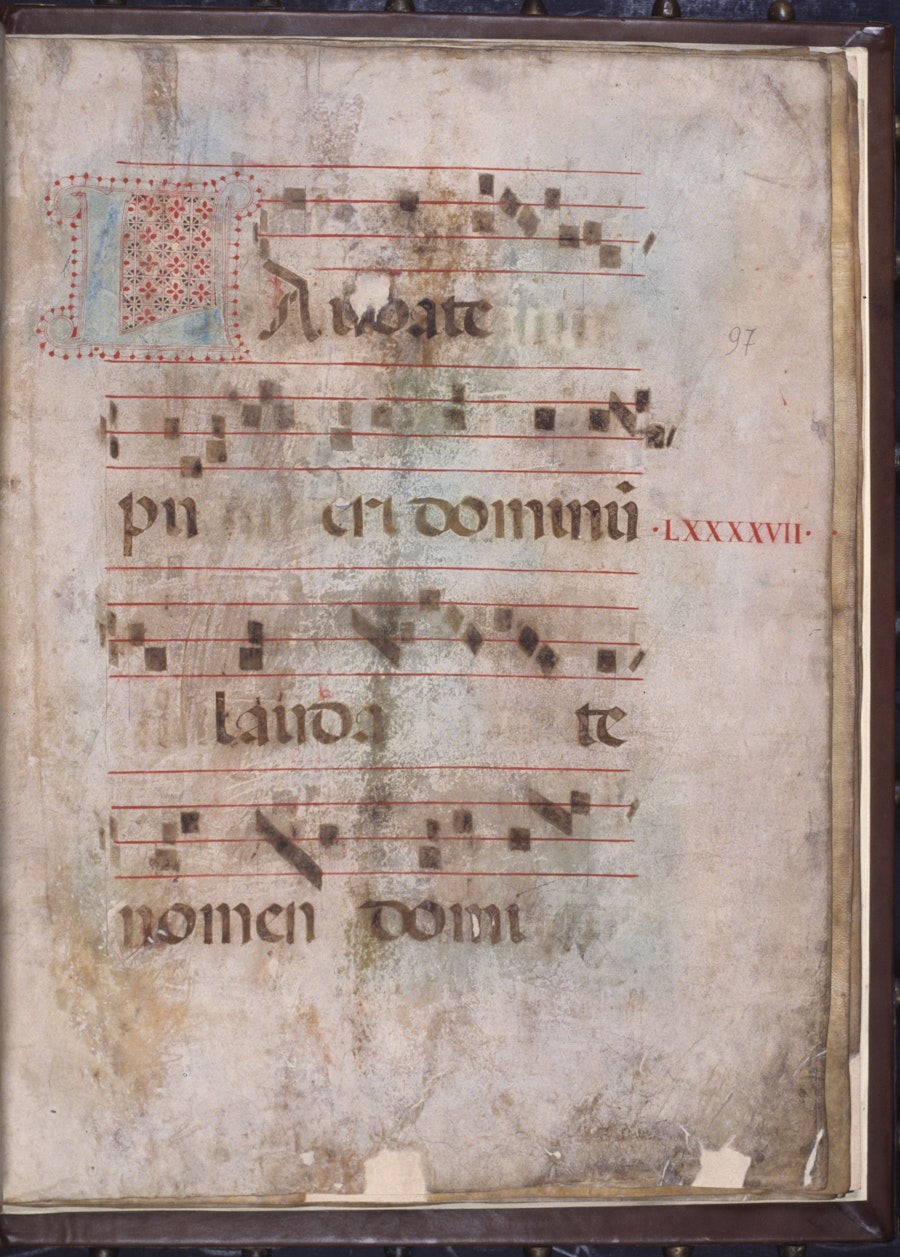 LAudate
97
pu eri dominū
·LXXXXVII·
lauda te
nomen domi